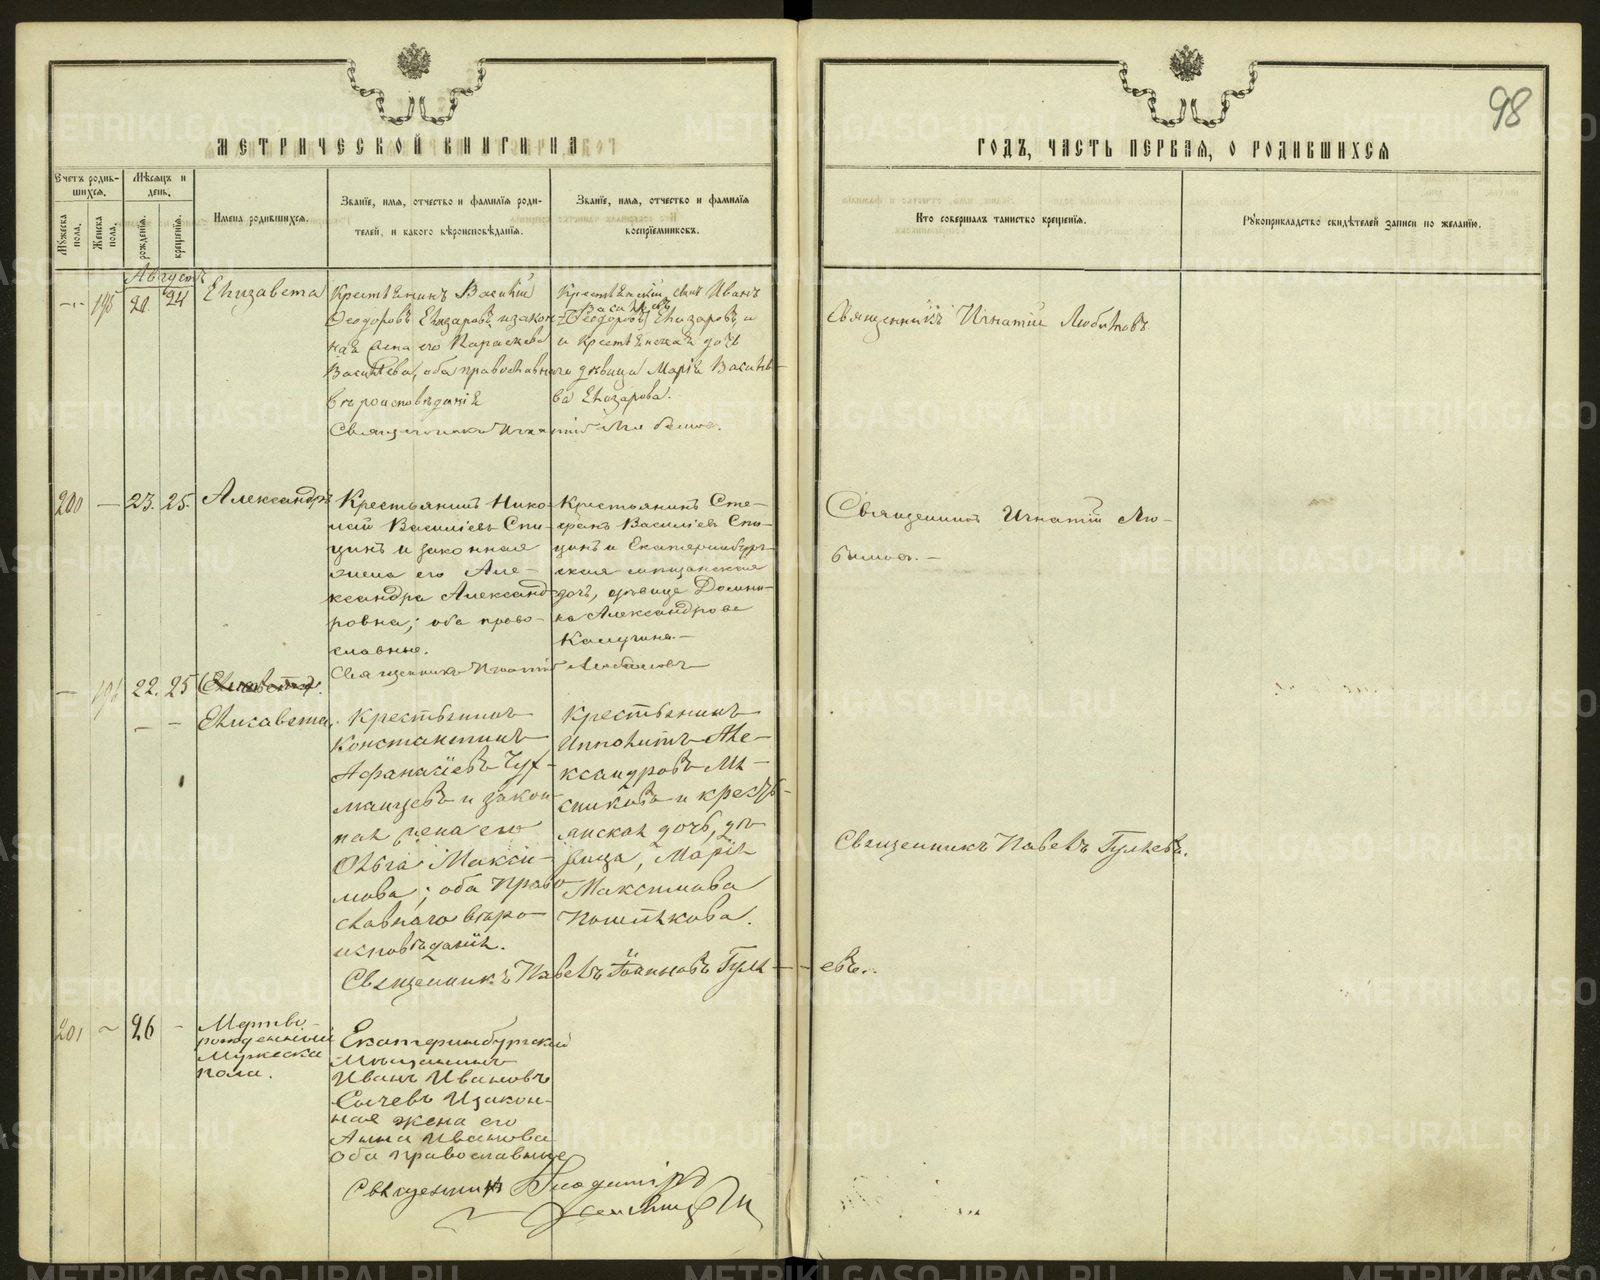 98
МЕТРИЧЕСКОЙ КНИГИ НА
ГОДЪ, ЧАСТЬ ПЕРВАЯ, О РОДИВШИХСЯ
Счетъ родив-
шихся.
Мѣсяцъ и
день.
Мужеска
пола.
Женска
пола.
рожденія.
крещенія.
Имена родившихся.
Званіе, имя, отчество и фамилія роди-
телей, и какого вѣроисповѣданія.
Званіе, имя, отчество и фамилія
воспріемниковъ.
Кто совершалъ таинство крещенія.
Рукоприкладство свидѣтелей записи по желанію.
Августъ
24
Елизавета
Крестьянинъ Василій
Ѳеодоровъ Елизаровъ и закон-
ная жена его Параскева
Васильева, оба православнаго
вѣроисповѣданія
Крестьянскій сынъ Иванъ
Васильевъ
Ѳеодоровъ Елизаровъ и
и крестьянская дочь
дѣвица Марія Василье-
ва Елизарова.
Священникъ Игнатій Любимовъ.
Священникъ Игнатій Любимовъ
200 — 23. 25.
Александръ
Крестьянинъ Нико-
лай Васильевъ Спи-
цинъ и законная
жена его Але-
ксандра Александ-
ровна; оба право-
славные.
Крестьянинъ Сте-
фанъ Васильевъ Спи-
цинъ и Екатеринбург-
ская мѣщанская
дочь, дѣвица Домни-
ка Александрова
Калугина.—
Священникъ Игнатій Любимовъ
Священникъ Игнатій Лю-
бимовъ.—
— 191 22. 25
— — Елисавета.
Крестьянинъ
Константинъ
Афанасіевъ Чух-
манцевъ и закон-
ная жена его
Ольга Макси-
мова; оба право
славнаго вѣро-
исповѣданія.
Крестьянинъ
Ипполитъ Але-
ксандровъ Мя-
сниковъ и кресть-
янская дочь, дѣ-
вица, Марія
Максимова
Священникъ Павелъ Гуляевъ.
Священникъ Павелъ Іоанновъ Гуля-
евъ.
201 26 —
Мертво-
рожденный
Мужеска
пола.
Екатеринбургскій
Мѣщанинъ
Иванъ Ивановъ
Сычевъ И закон-
ная жена его
Анна Иванова
Оба православные
Священникъ Владиміръ
METRIKI.GASO-URAL.RU